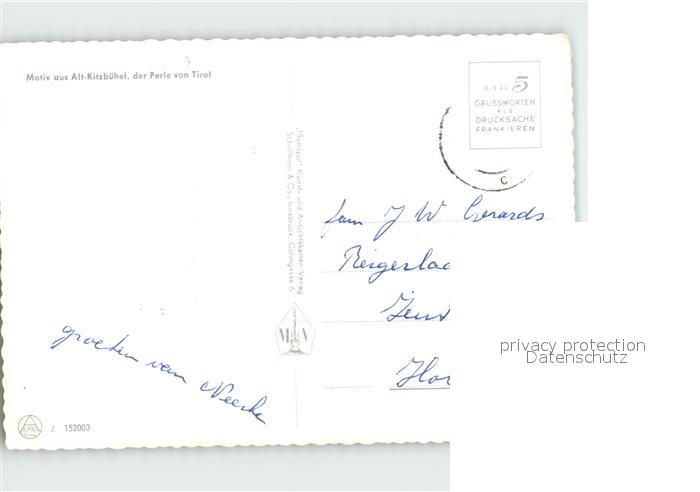 Motiv aus Alt-Kitzbühel, der Perle von Tirol
BIS ZU 5
GRUSSWORTEN
ALS
DRUCKSACHE
FRANKIEREN
C
„Monopol" Kunst- und Ansichtskarten-Verlag
Schöllhorn & Co., Innsbruck, Colingasse 6
fam J W Gerards
groeten van Neerke
2 152003
privacy protection
Datenschutz